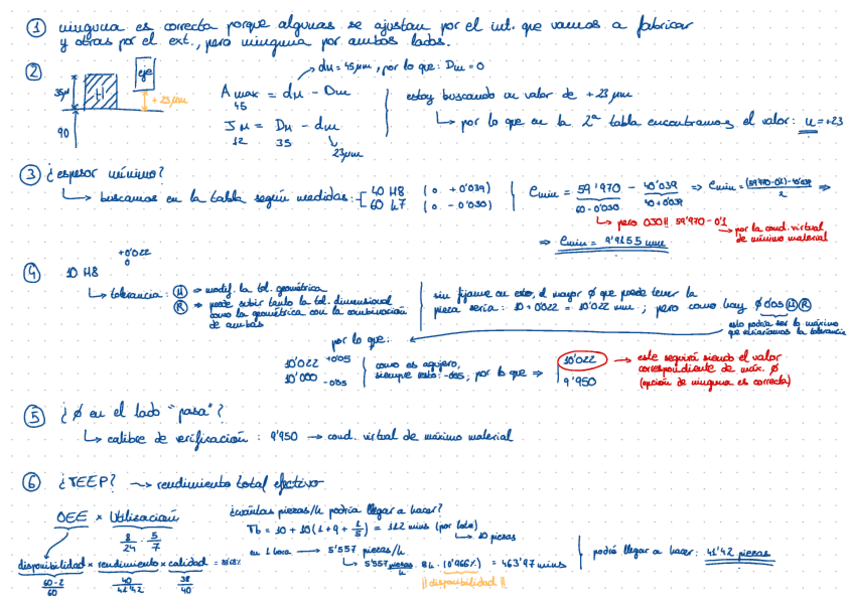 ① ninguna es correcta porque algunas se ajustan por el int. que vamos a fabricar
y otras por el ext., pero ninguna por ambos lados.
②
eje
H
35µ
+23µm
90
dm = 45µm, por lo que: Dm = 0
A max = dM - Dm
45
J M = DM - dm
12 35
23µm
estoy buscando un valor de +23µm
por lo que en la 2ª tabla encontramos el valor: u = +23
③ ¿espesor mínimo?
buscamos en la tabla según medidas:
40 H8 (0. +0'039)
60 h7 (0. -0'030)
emin = 59'970 - 40'039 ⇒ emin = ⇒
60-0'030 40+0'039
2
pero OJO!! 59'970-0'1
por la cond. virtual
de mínimo material
⇒ emin = 9'9155 mm
④ 10 H8
+0'022
0
tolerancia: Ⓜ ⇒ modif. la tol. geométrica
Ⓡ ⇒ puede subir tanto la tol. dimensional
como la geométrica con la combinación
de ambas
sin fijarme en esto, el mayor Ø que puede tener la
pieza sería: 10+0'022 = 10'022 mm; pero como hay Ø0'05 Ⓜ Ⓡ
esto podría ser lo máximo
la tolerancia
por lo que:
10'022 +0'05
10'000 -0'05
como es agujero,
siempre resto: -0'05; por lo que ⇒
10'022
9'950
este seguirá siendo el valor
correspondiente de máx. Ø
(opción de ninguna es correcta)
⑤ ¿Ø en el lado "pasa"?
calibre de verificación: 9'950 → cond. virtual de máximo material
⑥ ¿TEEP? → rendimiento total efectivo
OEE × Utilización
8/24 · 5/7
disponibilidad × rendimiento × calidad
60-2/60
40/41'42
38/40
¿cuántas piezas/h podría llegar a hacer?
Tb = 10 + 10(1+9+1/5) = 112 mins (por lote)
10 piezas
en 1 hora → 5'357 piezas/h.
5'357 piezas/h · 8h · (0'966%) = 463'97 mins
|| disponibilidad ||
podría llegar a hacer: 41'42 piezas